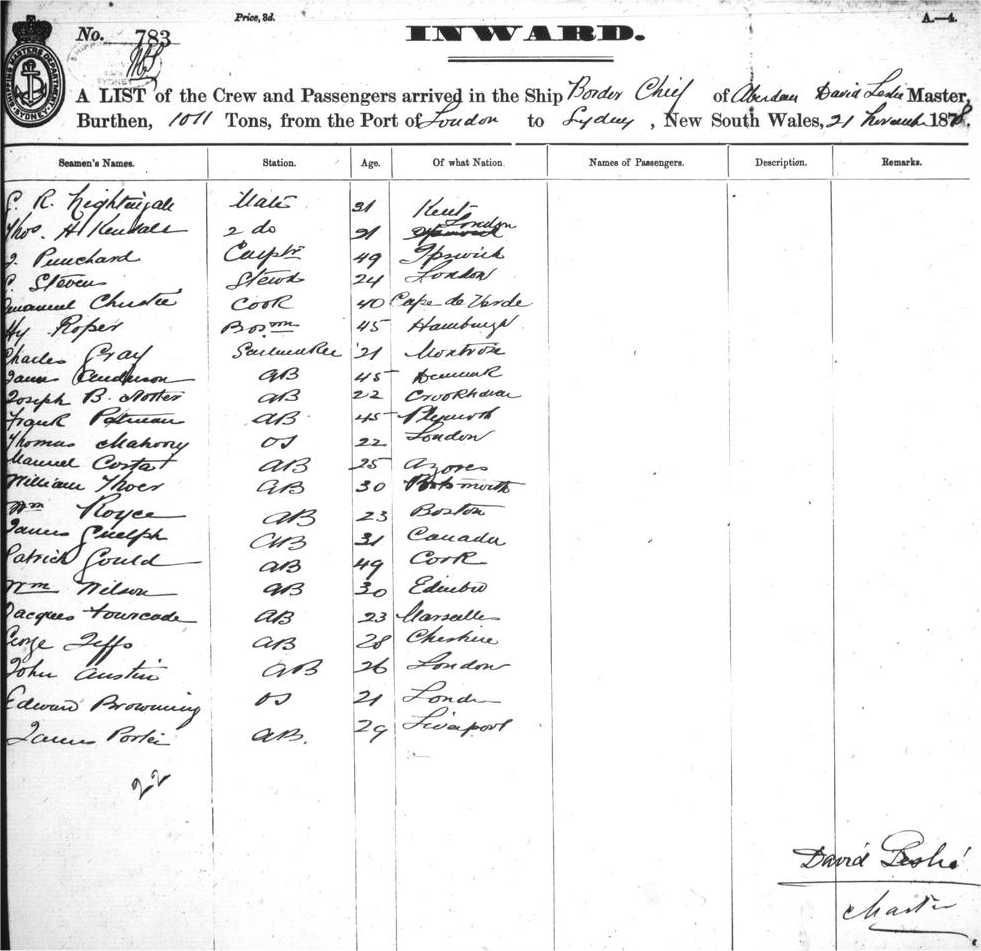 Price, 3d.
A.—4.
No. 783
INWARD.
SHIPPING MASTERS DEPARTMENT SYDNEY
A LIST of the Crew and Passengers arrived in the Ship Border Chief of Aberdeen David Leslie Master,
Burthen, 1011 Tons, from the Port of London to Sydney, New South Wales, 21 1878.
Seamen's Names. Station. Age. Of what Nation. Names of Passengers. Description. Remarks.
R. Nightingale Mate 31 Kent
Thos. H Kendall 2 do 21 London
J. Punchard Carptr 49 Ipswich
Stevens Stewd 24 London
Emanuel Christie Cook 40 Cape de Verde
Hy Roper Bosm 45 Hamburgh
Charles Gray Sailmaker 21 Montrose
James Anderson AB 45 Denmark
Joseph B. AB 22
Frank AB 45 Plymouth
Thomas Mahony OS 22 London
Manuel Costa AB 25 Azores
William AB 30 Portsmouth
Wm Royce AB 23 Boston
James Guelph AB 31 Canada
Patrick Gould AB 49 Cork
Wm Wilson AB 30 Edinbro
Jacques Fourcade AB 23 Marseilles
George Jeffs AB 28 Cheshire
John Austin AB 26 London
Edward Browning OS 21 London
James Porter AB. 29 Liverpool
22
David Leslie
Master